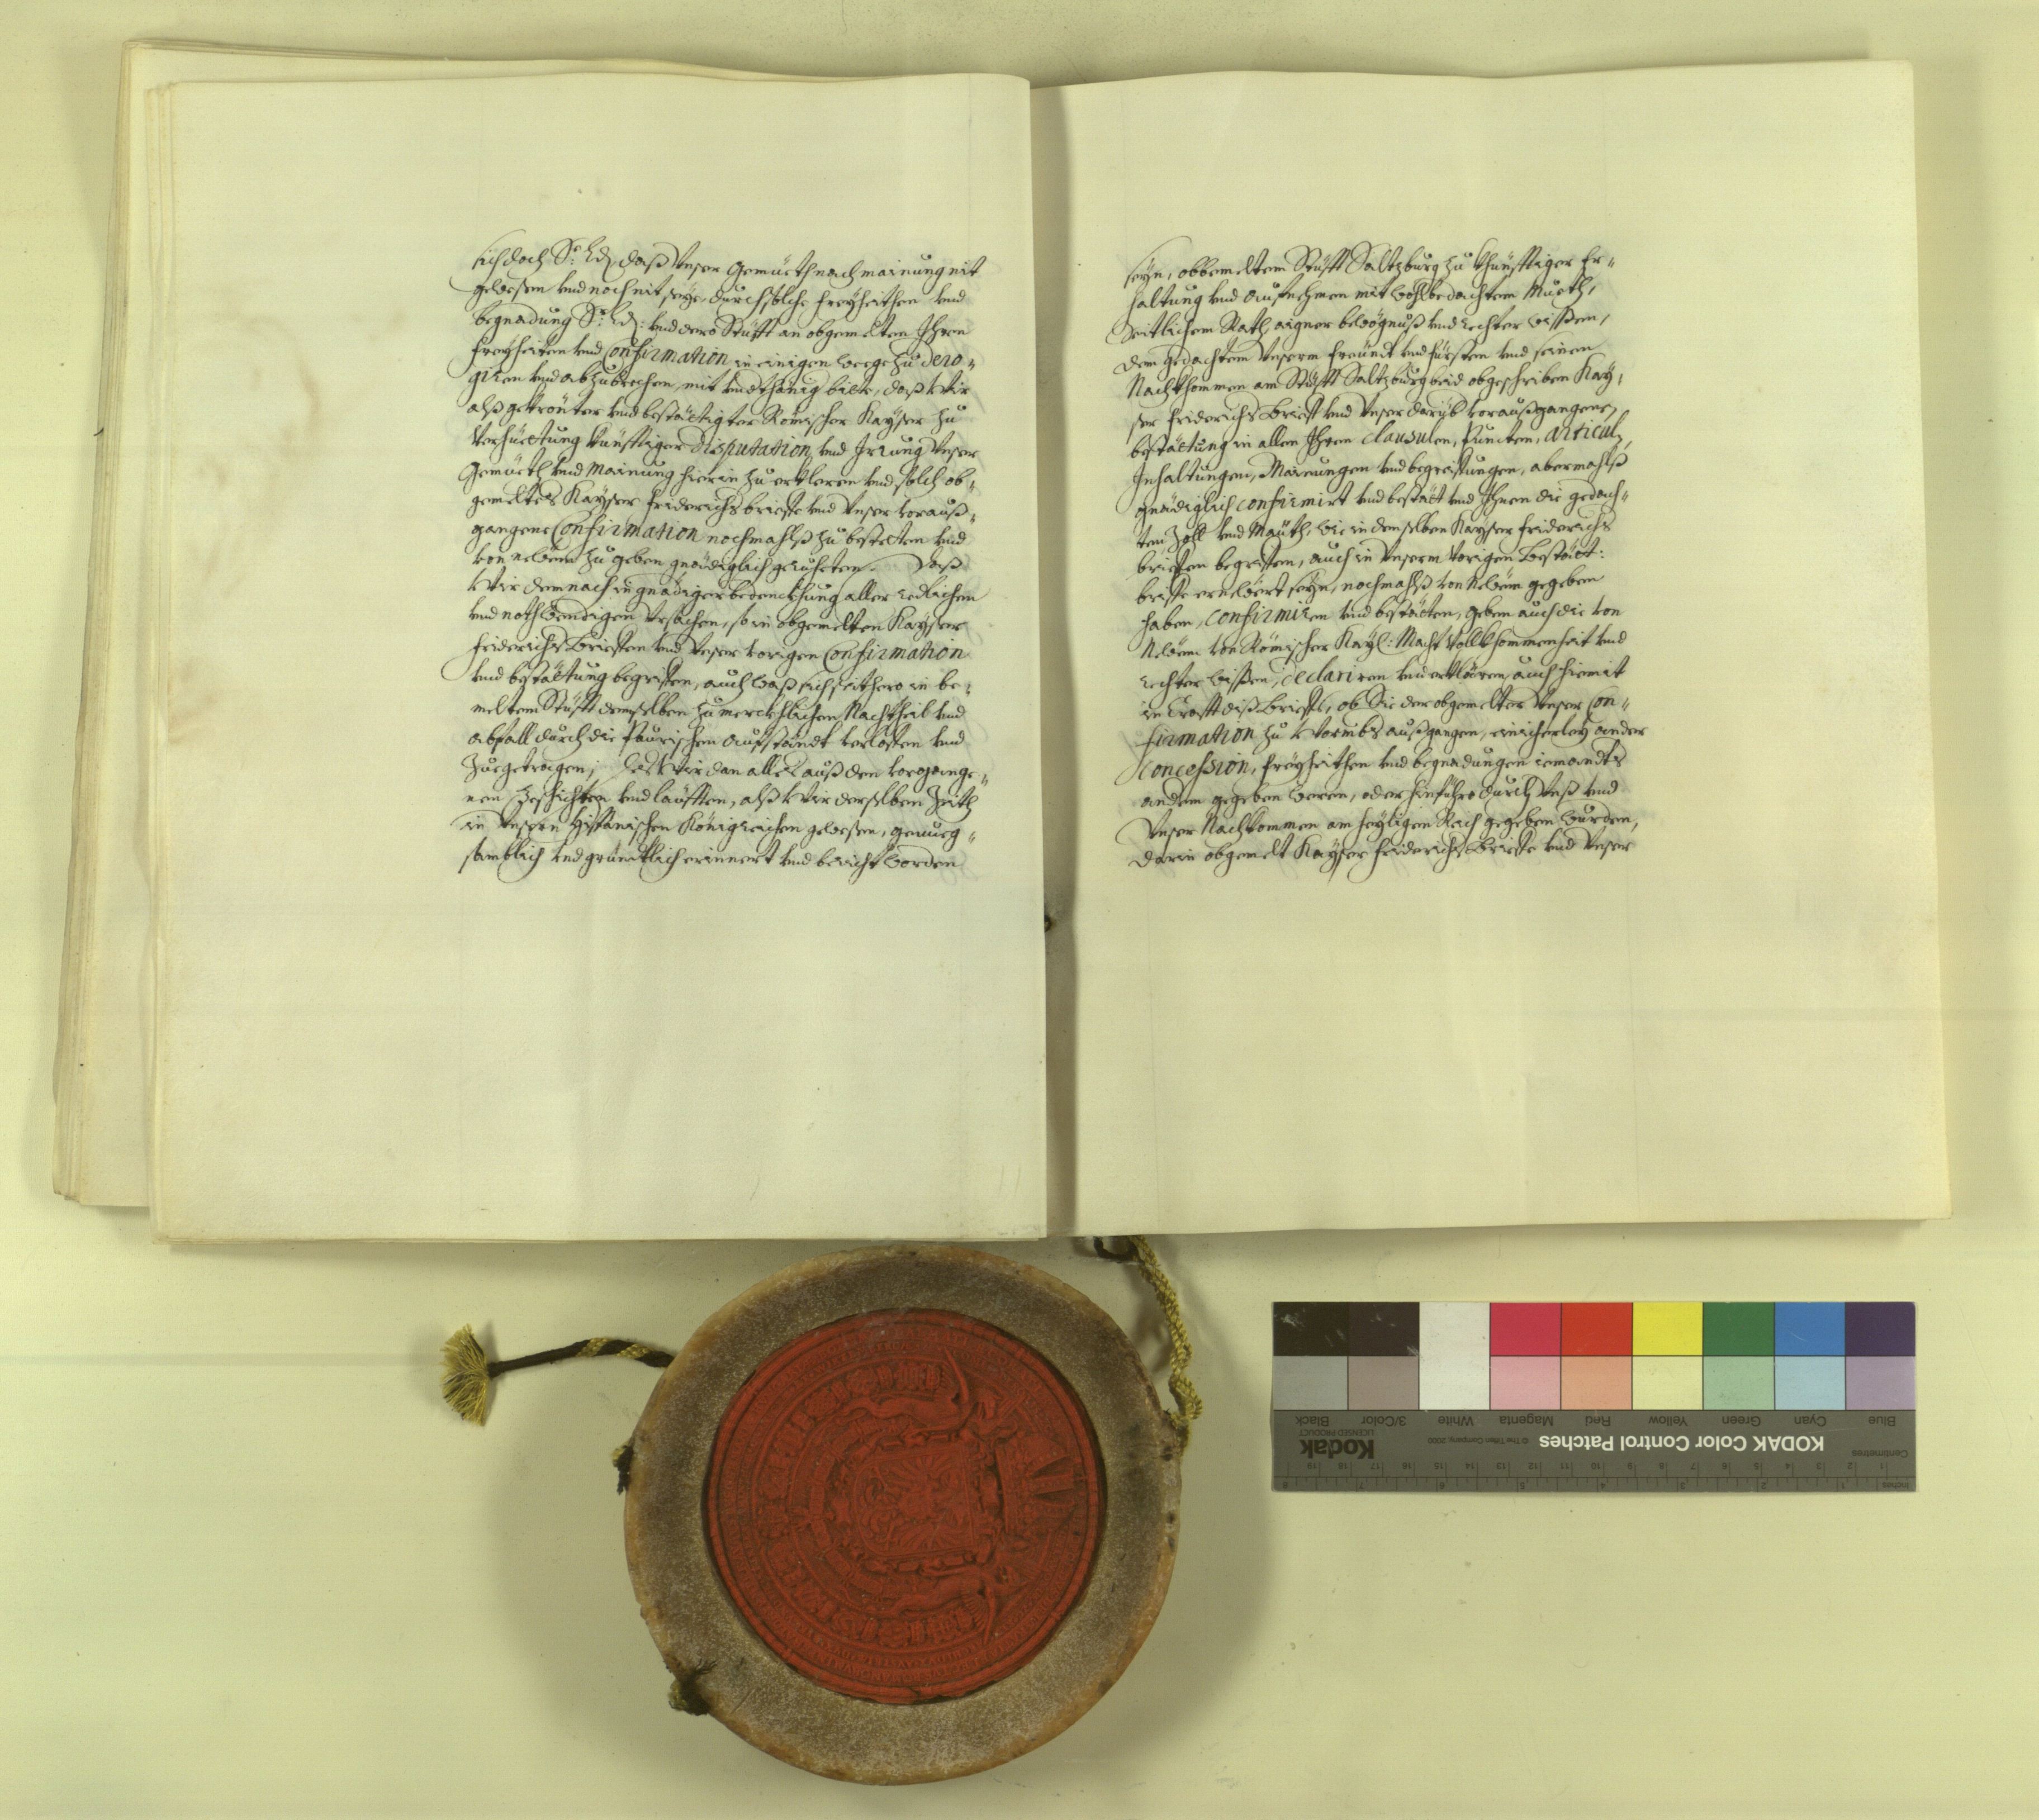 sich doch Sr: Ld: daß Vnser Gemüeth nach mainung nit
gewesen vnd noch nit seÿe, durch solche freÿheithen vnd
begnadung Sr: Ld: vnd dero Stüfft an obgemelten Ihren
freÿheiten vnd Confirmation in einigen weege zu dero-
giren vnd abzubrechen, mit vndthänig bitt, daß Wir
alß gekrönter vnd bestättigter Römischer Kaÿser zu
Verhüettung künfftiger Disputation, vnd Irrung Vnser
Gemüeth vnd Mainung hierin zu erkleren vnd solch ob-
gemeltes Kaÿser friderichs brieffe vnd Vnser vorauß-
gangene Confirmation nochmahlß zu bestetten vnd
von newem zu geben gnädiglich geruheten. Daß
Wir demnach in gnädiger bedenckhung aller redlichen
vnd nothwendigen Vrsachen, so in obgemelten Kaÿser
friderichs Brieffen vnd Vnser vorigen Confirmation
vnd bestättung begriffen, auch waß sich seithero in be-
meltem Stüfft demselben zu merckhlichen Nachtheil vnd
abfall durch die Paurischen Aufständt verloffen vnd
zuegetragen, des Wir dan alles auß den vorgange-
nen geschichten vnd läufften, alß Wir derselben Zeith
in Vnsern Hispanischen Königreichen gewesen, genueg-
samblich vnd gründtlich erinnert vnd bericht worden
seÿn, obbemeltem Stüfft Saltzburg zu khünfftiger Er-
haltung vnd Aufnehmen mit wohlbedachtem Mueth,
zeitlichem Rath, aigner bewögnuß vnd rechter wissen,
dem gedachtem Vnserm freündt vnd fürsten vnd seinen
Nachkhommen am Stüfft Saltzburg beid obgeschriben Kaÿ-
ser friderichs Brieff vnd Vnser darüb voraußgangene
bestättung in allen Ihren Clausulen, Puncten, Articuln,
Inhaltungen, Mainungen vnd begreiffungen, abermahlß
gnädiglich confirmirt vnd bestätt vnd Ihnen die gedach-
ten Zoll vnd Mauth, wie in demselben Kaÿser friderichs
brieffen begriffen, auch in Vnserm Vorigen Bestätt:
brieffe ernewert seÿn, nochmahlß von Newem gegeben
haben, Confirmiren vnd bestätten, geben auch die von
Newem von Römischer Kaÿl: Macht Vollkhommenheit vnd
rechter wissen, declariren vnd erklären, auch hiemit
in Crafft diß Brieffs, ob Sie der obgemelter Vnser Con-
firmation zu Wormbs außgangen, einicherleÿ ander
Concession, freÿheithen vnd begnadungen iemandts
andern gegeben weren, oder hinführo durch Vnß vnd
Vnser Nachkommen am heÿligen Reich gegeben wurden,
darin obgemelt Kaÿser friderichs Brieffe vnd Vnser
KODAK Color Control Patches
Kodak
LICENSED PRODUCT
© The Tiffen Company, 2000
Blue Cyan Green Yellow Red Magenta White 3/Color Black
Centimetres
Inches